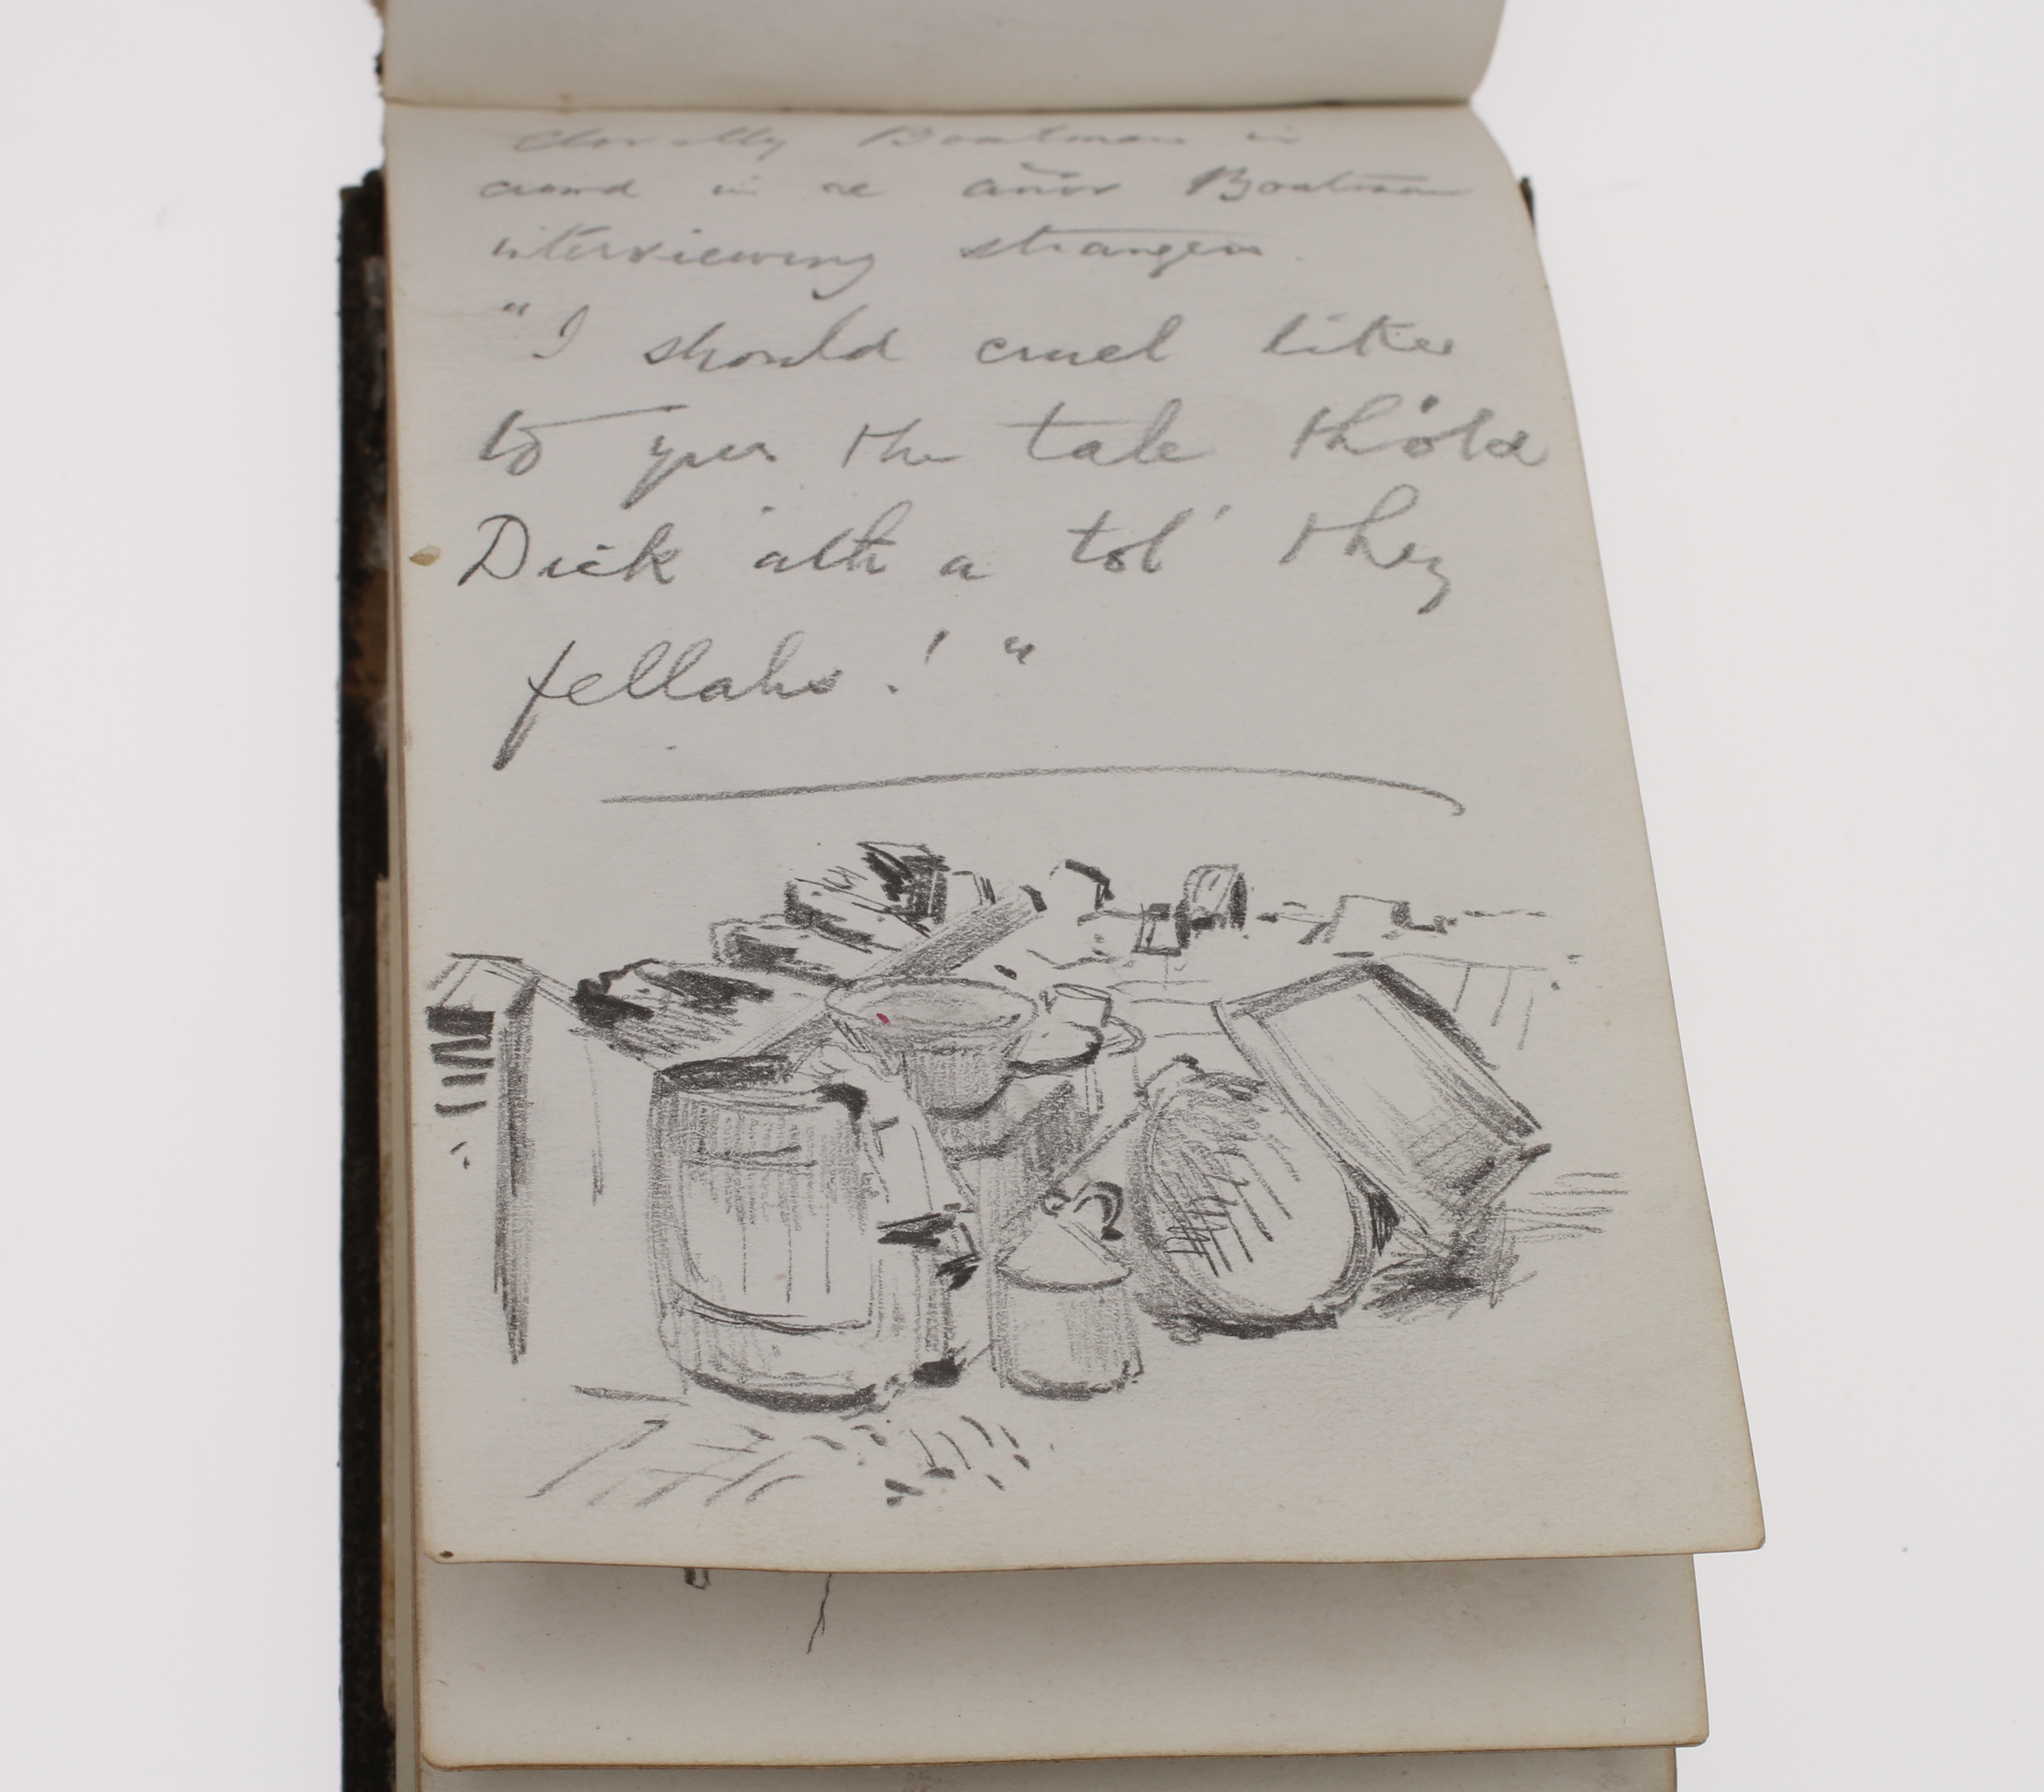 Clovelly Boatman in
crowd in re Boatman
interviewing strangers.
"I should cruel likee
to yeer the tale th'old
Dick 'ath a tol' they
fellahs!"